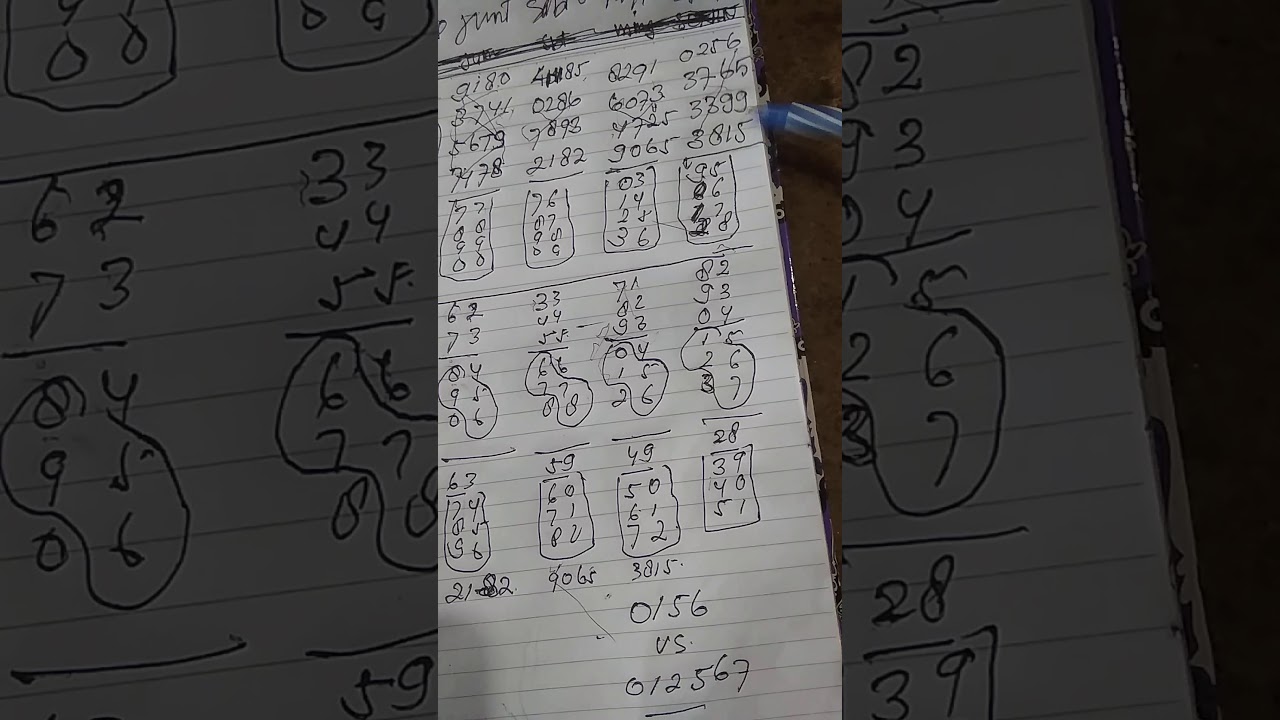 9180 4185 8291 0256
3741 0286 6073 3765
5679 7893 4725 3399
7478 2182 9065 3815
77 76 03 95
88 87 14 06
99 98 25 17
00 09 36 28
62 33 71 82
73 44 82 93
55 93 04
84 66 04 15
95 77 15 26
06 88 26 37
63 59 49 28
74 60 50 39
85 71 61 40
96 82 72 51
2182 9065 3815
0156
vs.
012567